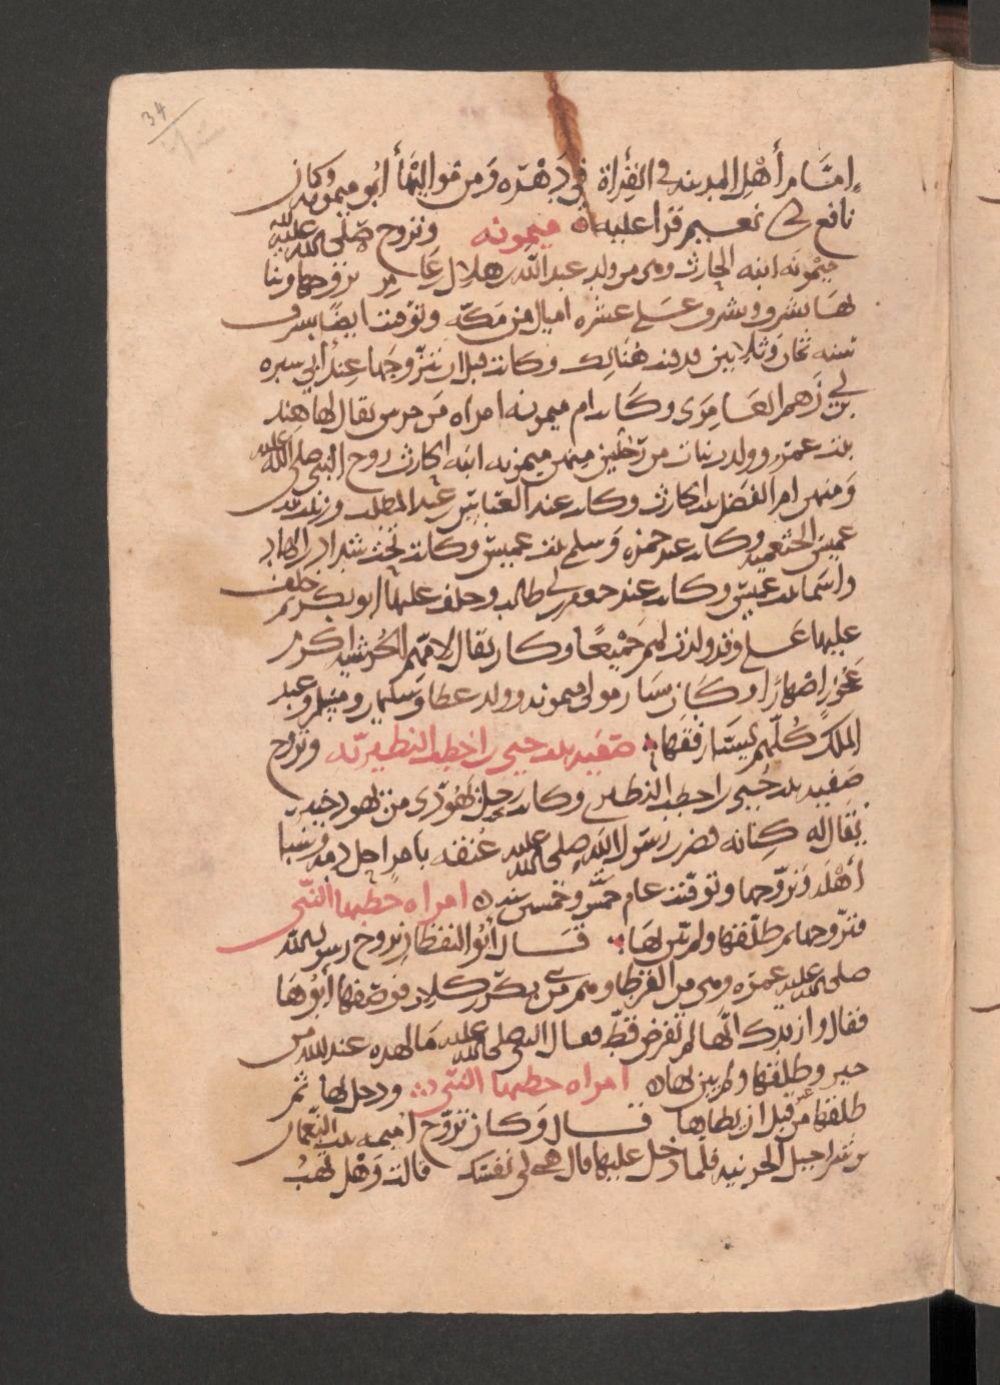 34
إمام أهل المدينه في القراة في دهره ومن مواليها أبو ميمونه وكان
نافع بن ابي نعيم قرا عليه ميمونه وتزوج صلى الله عليه
ميمونه ابنه الحارث وهي من ولد عبد الله بن هلال بن عامر تزوجها وبنا
لها بسرف وبسرف على عشره اميال من مكه وتوفت ايضا بسرف
سنه ثمان وثلاثين فدفنت هنالك وكانت قبل ان يتزوجها عند أبي سبره
بن أبي رهم العامري وكانت ام ميمونه امراه من جرس يقال لها هند
بنت عمرو وولدت بنات من رجلين منهن ميمونه ابنه الحارث زوج النبي صلى الله عليه
ومنهن ام الفضل بنت الحارث وكانت عند العباس بن عبد المطلب وزينب بنت
عميس الخثعميه وكانت عند حمزه وسلمى بنت عميس وكانت تحت شداد بن الهاد
واسما بنت عميس وكانت عند جعفر بن أبي طالب وخلف عليها ابو بكر ثم خلف
عليها علي وقد ولدت لهم جميعا وكان يقال لامهم الجرشيه اكرم
عجوز اصهارا وكان يسار مولى ميمونه وولد عطا وسليمن ومسلم وعبد
الملك كلهم يسار فقها صفيه بنت حيي بن اخطب النظيريه وتزوج
صفيه بنت حيي بن احطب النظيري وكانت رجل يهودي من يهود خيبر
يقال له كنانه فضرب رسول الله صلى الله عليه عنقه بامر احل دمه وسبا
أهله وتزوجها وتوفت عام خمس وخمسين سنه امراه خطبها النبي
فتزوجها ثم طلقها ولم يبن لها قال أبو اليقظان تزوج رسول الله
صلى الله عليه عمره وهي من القرظا وهم من بني بكر بن كلاب فوصفها أبوها
فقال وازيدك انها لم تمرض قط فقال النبي صلى الله عليه ما لهذه عند الله من
خير وطلقها ولم يبن لها امراه خطبها النبي ودخل بها ثم
طلقها من قبل ان يطاها قال وكان تزوج اميمه بنت النعمان
بن شراحيل الجونيه فلما دخل عليها قال هبي لي نفسك قالت وهل تهب